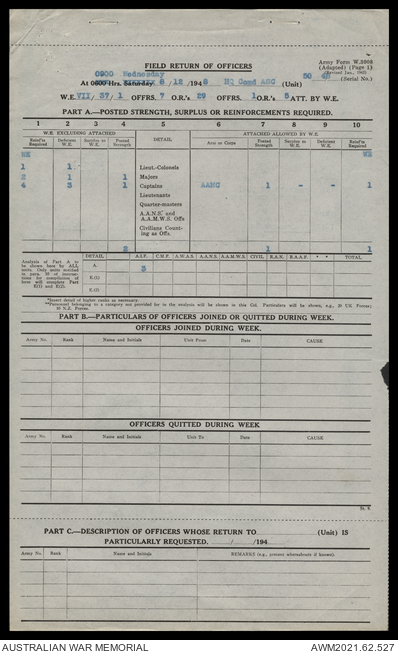 FIELD RETURN OF OFFICERS
Army Form W.3008
(Adapted) (Page 1)
(Revised Jan., 1945)
0900 Wednesday
At 0800 Hrs. Saturday 8 / 12 /194 HQ Comd ASC (Unit)
50 (Serial No.)
W.E. VII/ 37/ 1 OFFRS. 7 O.R's. 29 OFFRS. 1 O.R's. 5 ATT. BY W.E.
PART A.—POSTED STRENGTH, SURPLUS OR REINFORCEMENTS REQUIRED.
1 2 3 4 5 6 7 8 9 10
W.E. EXCLUDING ATTACHED DETAIL ATTACHED ALLOWED BY W.E. TOTAL
Reinf'ts Required Deficient W.E. Surplus to W.E. Posted Strength Arm or Corps Posted Strength Surplus to W.E. Deficient W.E. Reinf'ts Required
WE WE
1 1 Lieut.-Colonels
2 1 1 Majors
4 3 1 Captains AAMC 1 - - 1
Lieutenants
Quarter-masters
A.A.N.S. and A.A.M.W.S. Offs
Civilians Counting as Offs.
2 1 1
Analysis of Part A to be shown here by ALL units.
DETAIL A.I.F. C.M.F. A.W.A.S. A.A.N.S. A.A.M.W.S. CIVIL R.A.N. R.A.A.F. ** ** TOTAL
A. 3
E.(1)
E.(2)
*Insert detail of higher ranks as necessary.
**Personnel belonging to a category not provided for in the analysis will be shown in this Col. Particulars will be shown, e.g., 20 UK Forces; 10 N.Z. Forces.
PART B.—PARTICULARS OF OFFICERS JOINED OR QUITTED DURING WEEK.
OFFICERS JOINED DURING WEEK.
Army No. Rank Name and Initials Unit From Date CAUSE
OFFICERS QUITTED DURING WEEK
Army No. Rank Name and Initials Unit To Date CAUSE
PART C.—DESCRIPTION OF OFFICERS WHOSE RETURN TO (Unit) IS
PARTICULARLY REQUESTED. / /194
Army No. Rank Name and Initials REMARKS (e.g., present whereabouts if known).
AUSTRALIAN WAR MEMORIAL AWM2021.62.527